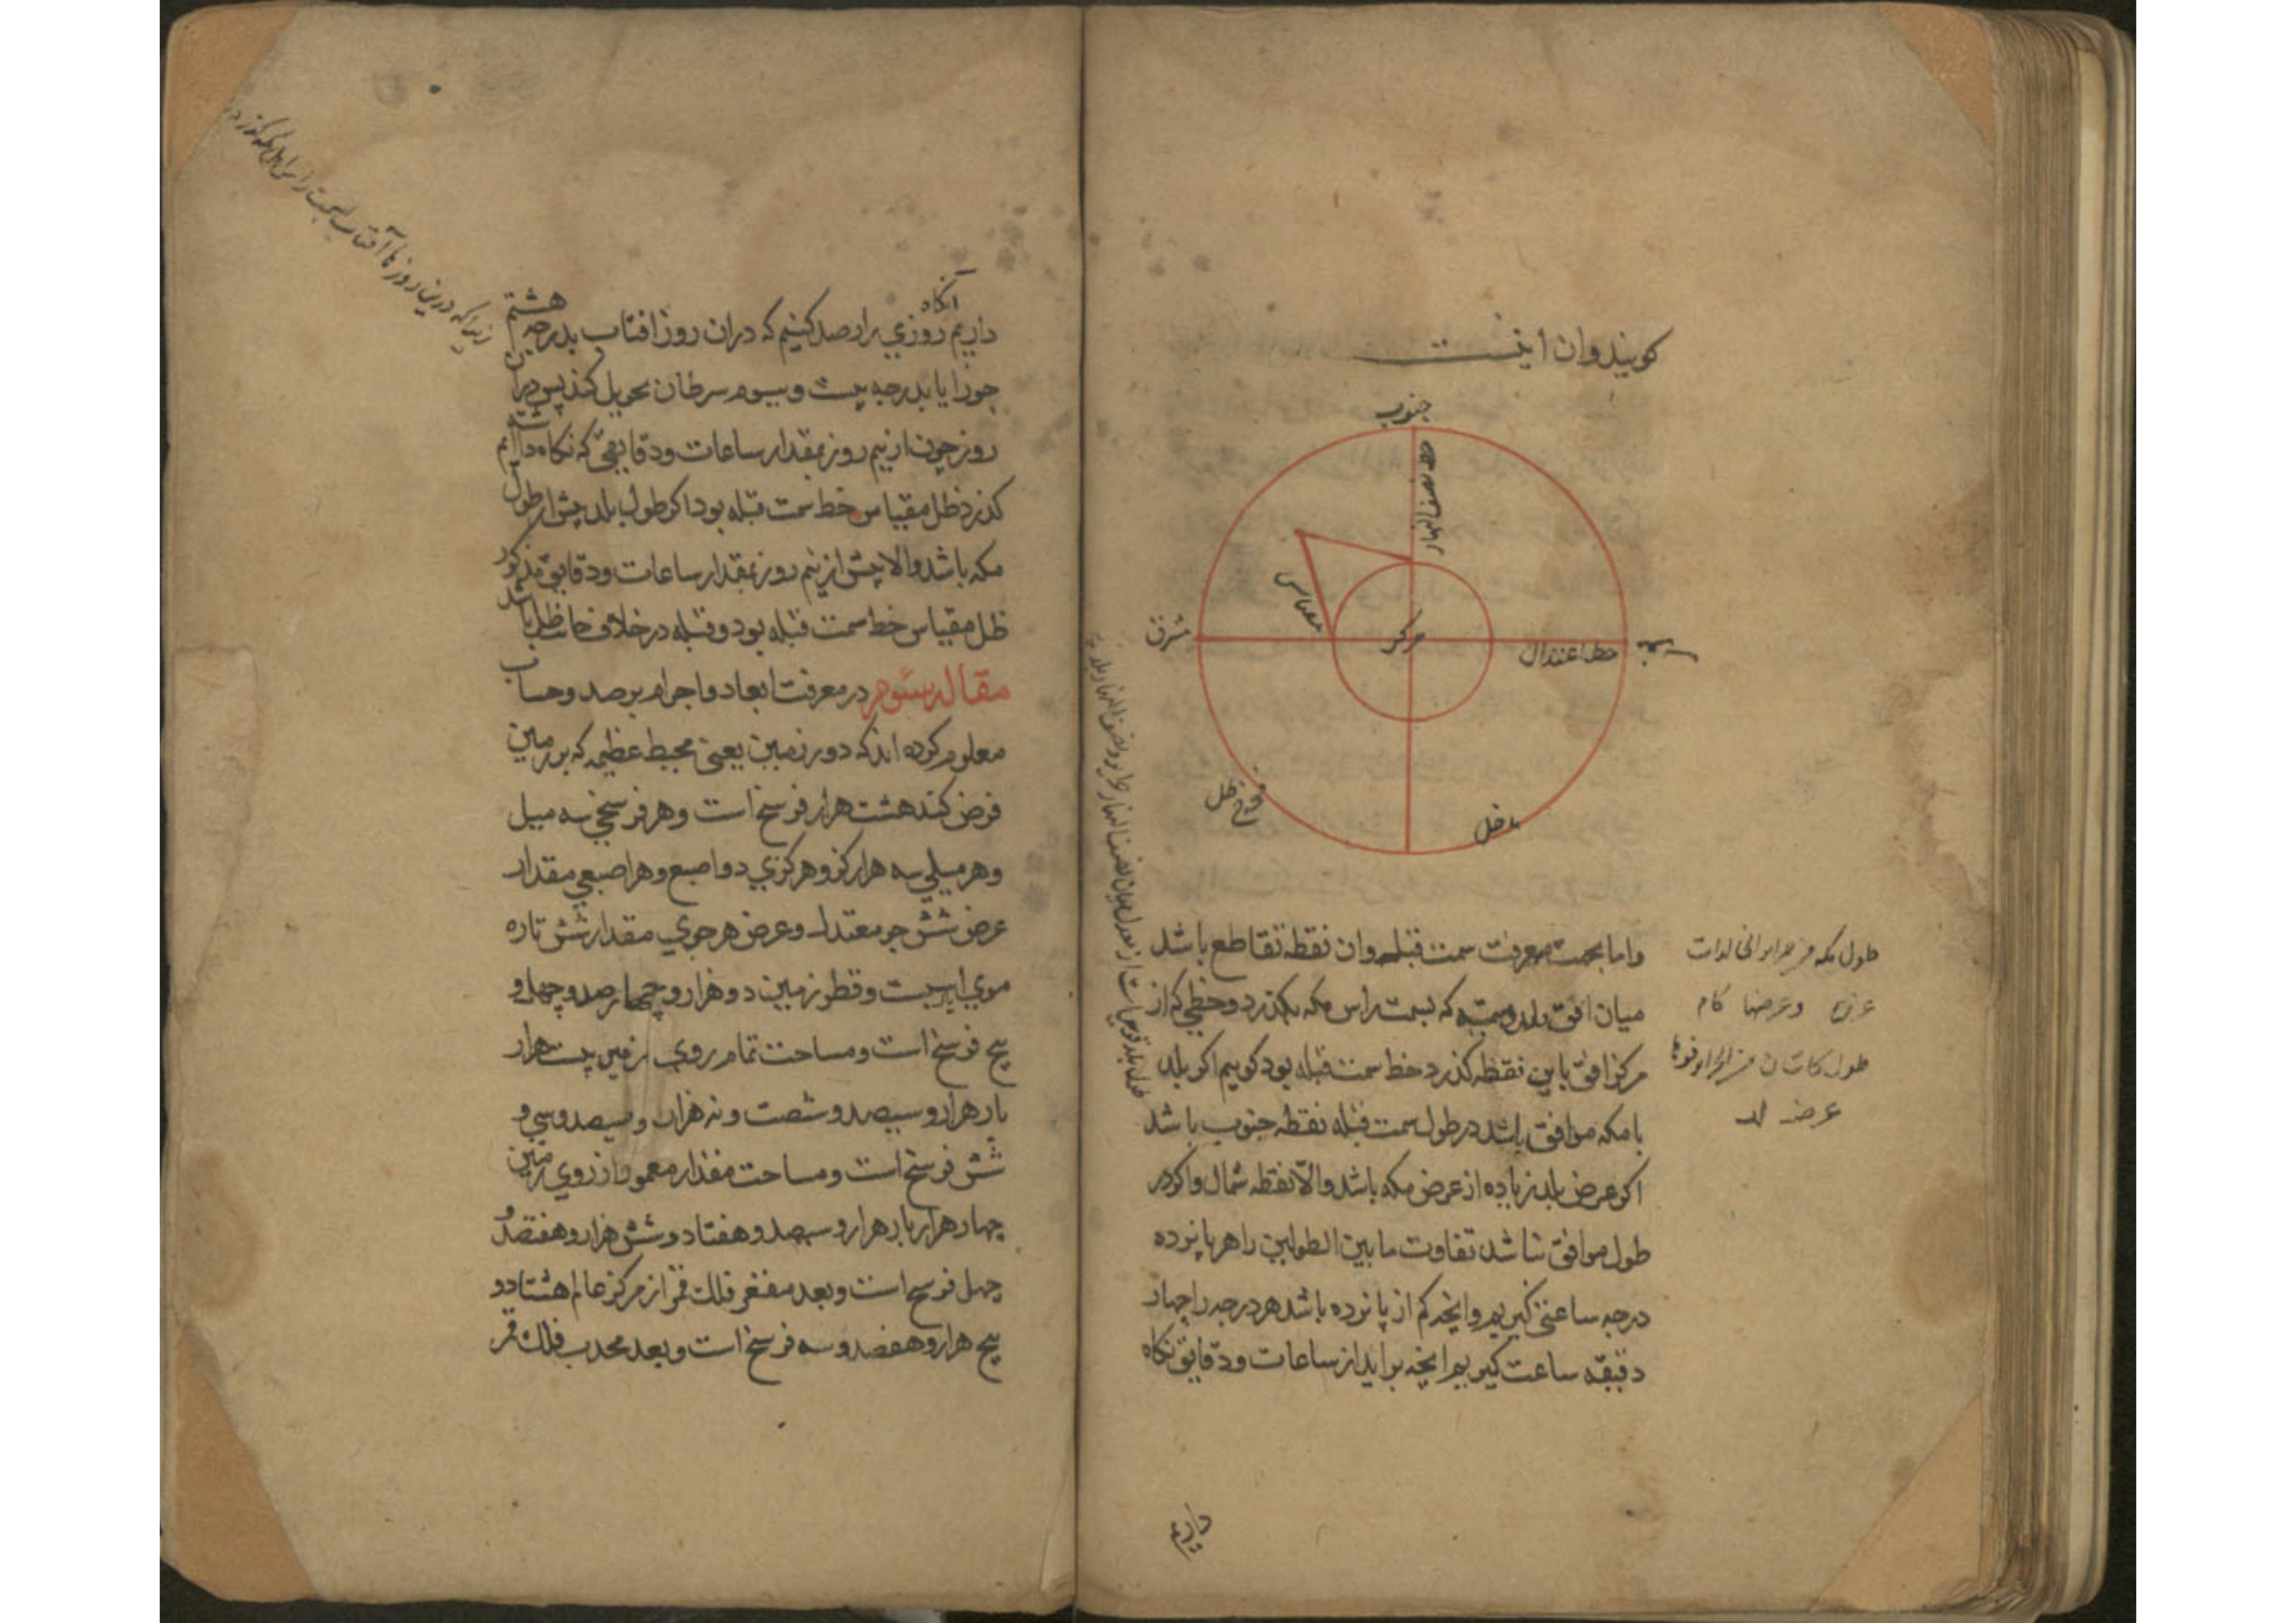 کویند وان اینست
جنوب
خط نصف النهار
مقیاس
مشرق
مرکز
خط اعتدال
مغرب
مخرج ظل
مدخل
واما بجهت معرفت سمت قبله وان نقطه تقاطع باشد
میان افق بلد و که بسمت راس مکه بکذرد و خطی که از
مرکز افق باین نقطه کذرد خط سمت قبله بود کوییم اکر بلد
با مکه موافق باشد در طول سمت قبله نقطه جنوب باشد
اکر عرض بلد زیاده از عرض مکه باشد والا نقطه شمال واکر در
طول موافق نباشد تفاوت ما بین الطولین را هر پانزده
درجه ساعتی کیریم وانچه کم از پانزده باشد هر درجه را چهار
دقیقه ساعت کیریم انچه براید از ساعات و دقایق نکاه
طول مکه
وعرضها کام
طول
عرض
داریم
داریم آنکاه روزی را رصد کنیم که دران روز افتاب بدرجه هشتم
جوزا یا بدرجه بیست و سیوم سرطان تحویل کند پس دران
روز چون از نیم روز بمقدار ساعات و دقایقی که نکاه داشته ایم
کذرد ظل مقیاس خط سمت قبله بود اکر طول بلد بیش از طول
مکه باشد والا پیش از نیم روز بمقدار ساعات و دقایق مذکور
ظل مقیاس خط سمت قبله بود و قبله در خلاف جانب ظل باشد
مقاله سیوم در معرفت ابعاد و اجرام برصد و حساب
معلوم کرده اند که دور زمین یعنی محیط عظیمه که بر زمین
فرض کنند هشت هزار فرسخ است و هر فرسخی سه میل
وهر میلی سه هزار کز و هر کزی دو اصبع و هر اصبعی مقدار
عرض شش جو معتدل و عرض هر جوی مقدار شش تاره
موی است و قطر زمین دو هزار و چهار صد و چهل و
پنج فرسخ است و مساحت تمام روی زمین بیست هزار
بار هزار و سیصد و شصت و نه هزار و سیصد و سی و
شش فرسخ است و مساحت مقدار معمور از روی زمین
چهار هزار بار هزار و سیصد و هفتاد و شش هزار و هفتصد و
چهل فرسخ است و بعد مقعر فلک قمر از مرکز عالم هشتاد و
پنج هزار و هفصد و سه فرسخ است و بعد محدب فلک قمر
زیرا که درین روزها آفتاب بسمت راس اهل مکه